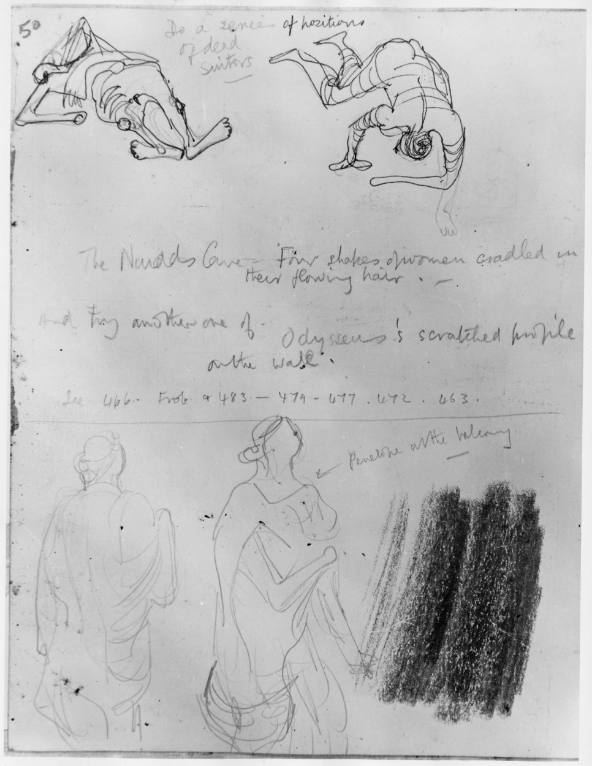 50
Do a series of positions
of dead
suitors
The Naiads Cave - Four shapes of women cradled in
their flowing hair. —
And Try another one of Odysseus's scratched profile
on the wall.
See 466. & 483 — 479 - 477. 472. 463.
Penelope on the balcony